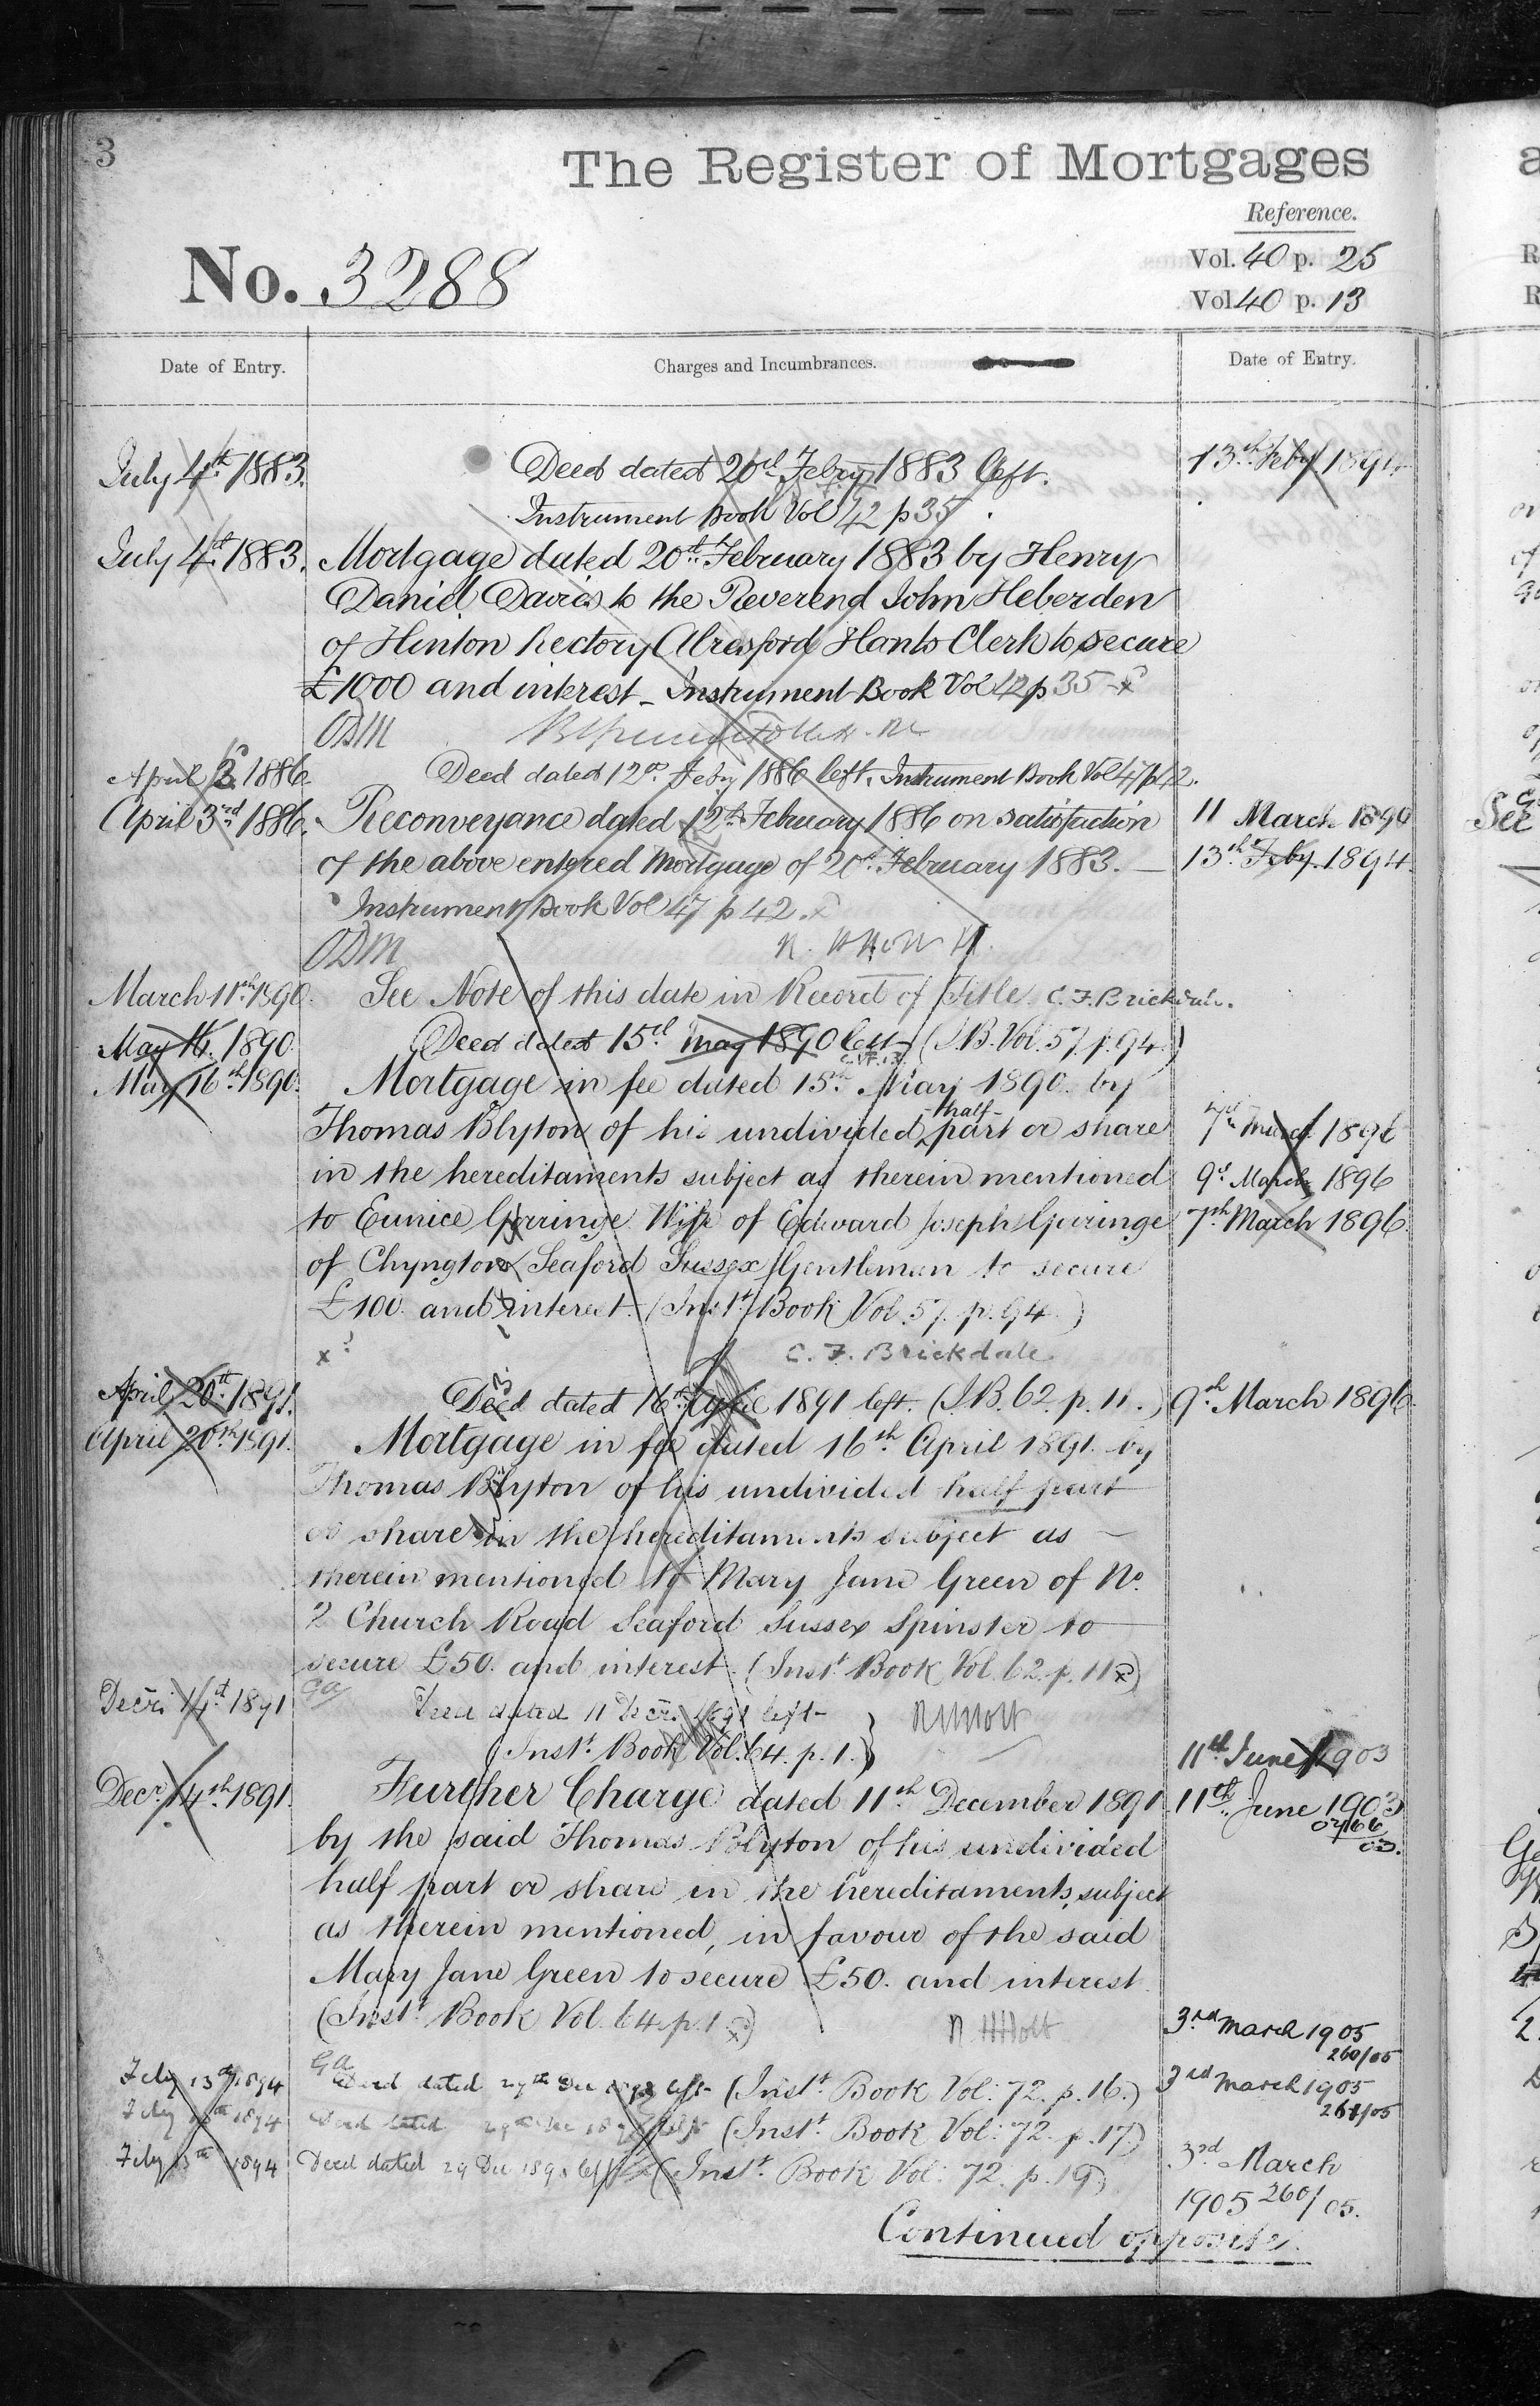 3
The Register of Mortgages
Reference.
No. 3288
Vol. 40 p. 25
Vol. 40 p. 13
Date of Entry.
Charges and Incumbrances.
Date of Entry.
July 4th 1883.
Deed dated 20th Febry 1883 left.
13th Feby 1894
Instrument Book Vol 42 p 35
July 4th 1883.
Mortgage dated 20th February 1883 by Henry
Daniel Davies to the Reverend John Heberden
of Hinton Rectory Alresford Hants Clerk to secure
£1000 and interest - Instrument Book Vol 42 p 35
ODM
April 2 1886
Deed dated 12th Feby 1886 left. Instrument Book Vol 47 p 42.
April 3rd 1886.
Reconveyance dated 12th February 1886 on satisfaction
11 March 1890
of the above entered Mortgage of 20th February 1883. —
13th Feby. 1894.
Instrument Book Vol 47 p 42.
ODM
R. H. Holt
March 11th 1890.
See Note of this date in Record of Title. C. F. Brickdale.
May 16. 1890.
Deed dated 15th May 1890 left (I.B. Vol. 57. p. 94.)
May 16th 1890.
Mortgage in fee dated 15th May 1890. by
Thomas Blyton of his undivided half part or share
7th March 1896
in the hereditaments subject as therein mentioned
9th March 1896
to Eunice Gorringe Wife of Edward Joseph Gorringe
7th March 1896.
of Chyngton Seaford Sussex Gentleman to secure
£100. and interest. (Inst. Book Vol. 57. p. 94.)
C. F. Brickdale
April 20th 1891.
Deed dated 16th April 1891 left. (I.B. 62. p. 11.)
9th March 1896.
April 20th 1891.
Mortgage in fee dated 16th April 1891. by
Thomas Blyton of his undivided half part
or share in the hereditaments subject as —
therein mentioned to Mary Jane Green of No.
2 Church Road Seaford Sussex Spinster to
secure £50. and interest. (Inst. Book Vol. 62. p. 11)
GA
Decr. 14th 1891
Deed dated 11 Decr. 1891 left
R H Holt
Inst. Book Vol. 64. p. 1.
11th June 1903
Decr. 14th 1891.
Further Charge dated 11th December 1891
11th June 1903
by the said Thomas Blyton of his undivided
03.
half part or share in the hereditaments, subject
as therein mentioned, in favour of the said
Mary Jane Green to secure £50. and interest.
(Inst. Book Vol. 64. p. 1)
R H Holt
3rd March 1905
260/05
GA
Feby 13th 1894
Deed dated 29th Dec 1893 left (Inst. Book Vol: 72. p. 16.)
3rd March 1905
261/05
Feby 13th 1894
Deed dated 29th Dec 1893 left (Inst. Book Vol: 72. p. 17)
Feby 13th 1894
Deed dated 29 Dec 1893 left (Inst. Book Vol: 72. p. 19)
3rd March
1905 260/05.
Continued opposite.